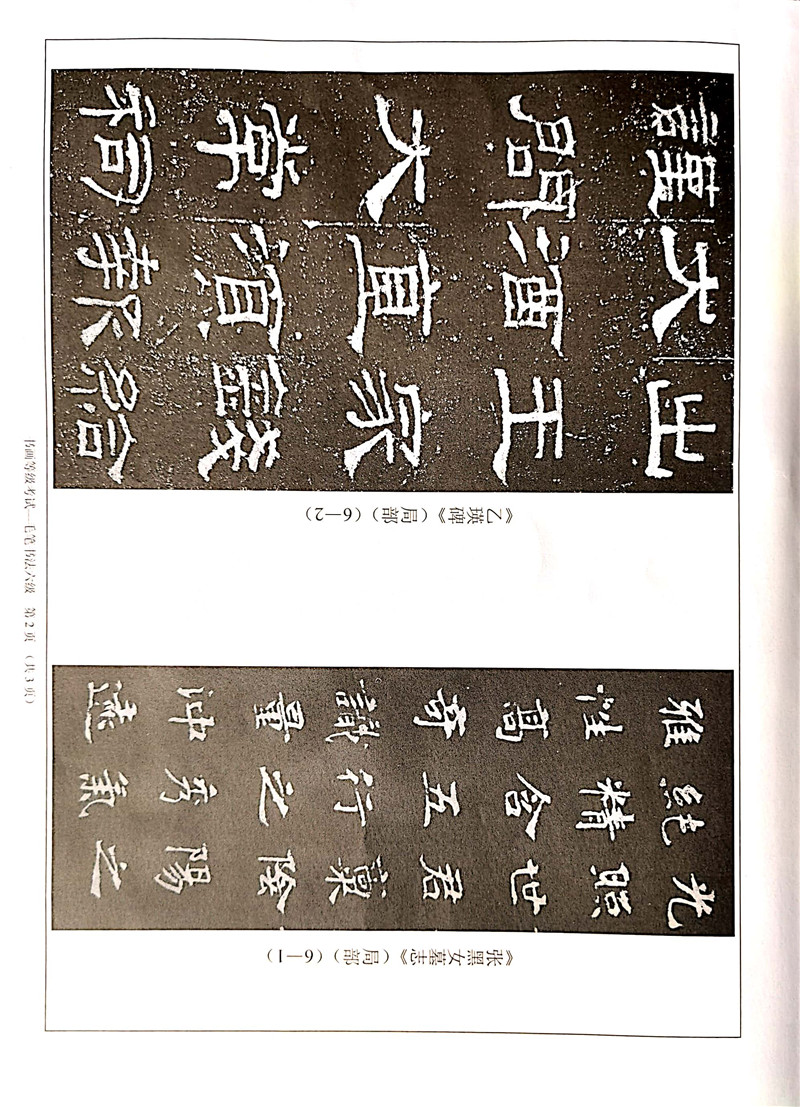 《张黑女墓志》（局部）（6—1）
光照世君稟陰陽之
純精含五行之秀氣
雅性高奇識量沖遠
《乙瑛碑》（局部）（6—2）
出王家錢給
犬酒直須報
謹問大常祠
书画等级考试—毛笔书法六级 第2页（共3页）